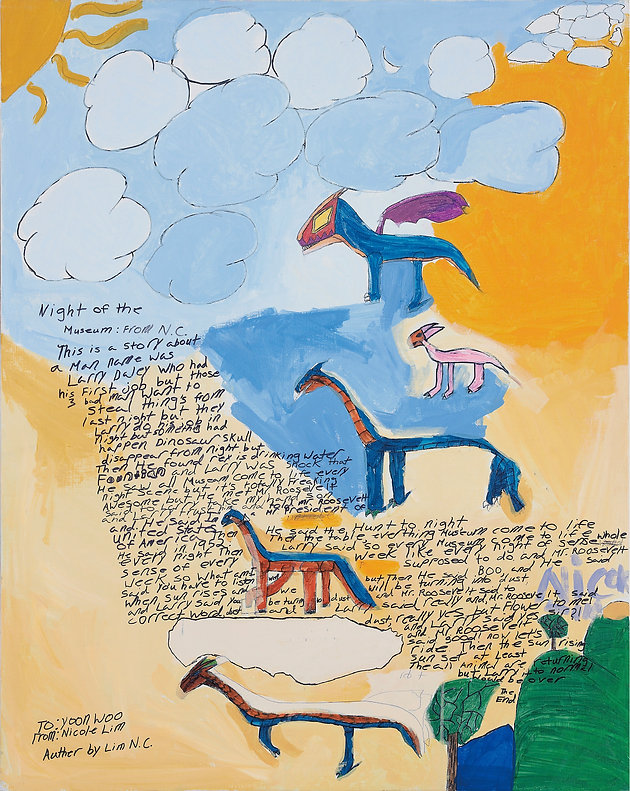 Night of the
Museum: From N.C.
This is a story about
a Man name was
Larry Daley who had
his First job but those
3 bad man want to
steal things from
last night but they
Larry do his job in
night but something had
happen Dinosaur skull
disappear from night but
Then He found rex is drinking water
and Larry was shock that
He said all Museum come to life every
night scene but it's totally freaking
Awesome but He met Mr. Roosevelt
and He said
United States
Of America Then
He said in 1952
every night Then
sense of every
week so what am I
said you have to listen
When sun rises and we
and Larry said you
correct word
He said the, Hunt to night
Then the table everything Museum come to life
Larry said so every Museum come to life whole
week like every night of sense
supposed to do and Mr. Roosevelt
but Then He said BOO, and He said
will be turned into dust
and Mr. Roosevelt said to
Larry said really and Mr. Roosevelt said
dust, really yes but flower to me!
and Larry said Yes
and Mr. Roosevelt
said good! now let's
ride Then the sun rising
sun set at Least
The all animal are returning
but Larry it to normal
would be over
The
End
TO: YOON WOO
From: Nicole Lim
Auther by Lim N.C.